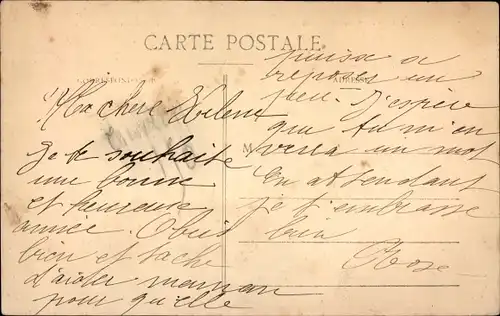 CARTE POSTALE
CORRESPONDANCE
ADRESSE
Ma chère Hélène
Je te souhaite
une bonne
et heureuse
année. Obéis
bien et tache
d'aider maman
pour qu'elle
puisse a
reposer un
peu. J'espère
que tu m'en
verra un mot
En attendant
je t'embrasse
bien
Rose
M